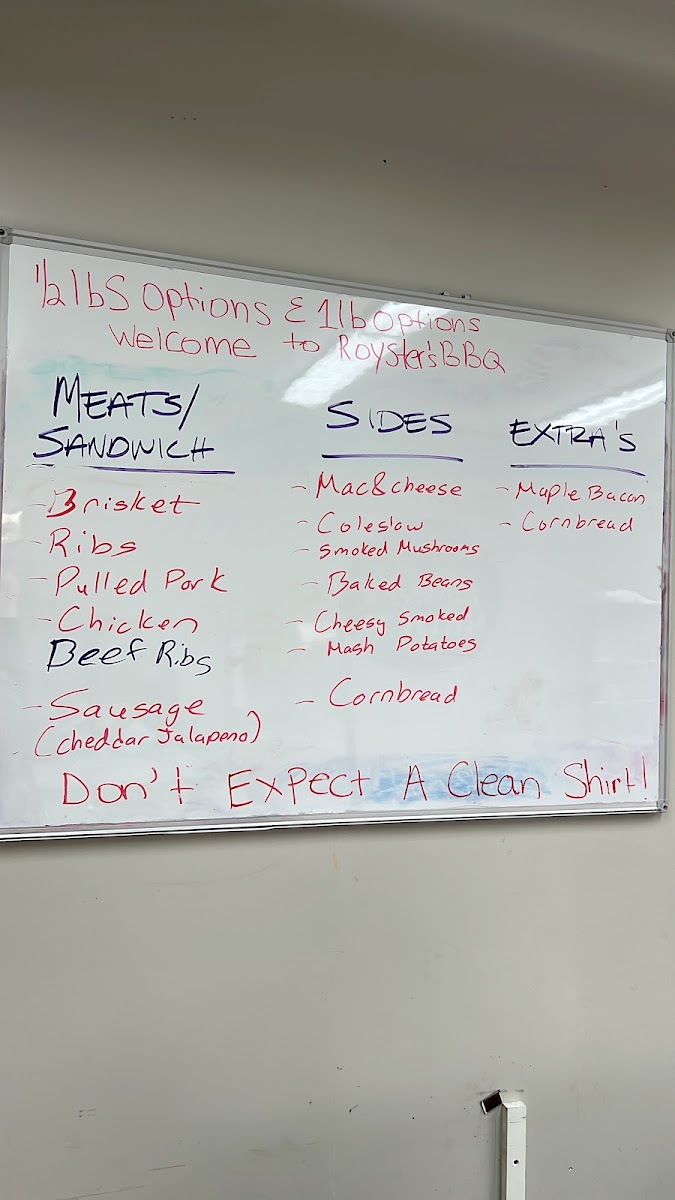 1/2 lbs Options & 1 lb Options
Welcome to Royster's BBQ
MEATS/
SANDWICH
- Brisket
- Ribs
- Pulled Pork
- Chicken
Beef Ribs
- Sausage
(cheddar Jalapeno)
SIDES
- Mac&cheese
- Coleslaw
- Smoked Mushrooms
- Baked Beans
- Cheesy Smoked
- Mash Potatoes
- Cornbread
EXTRA'S
- Maple Bacon
- Cornbread
Don't Expect A Clean Shirt!